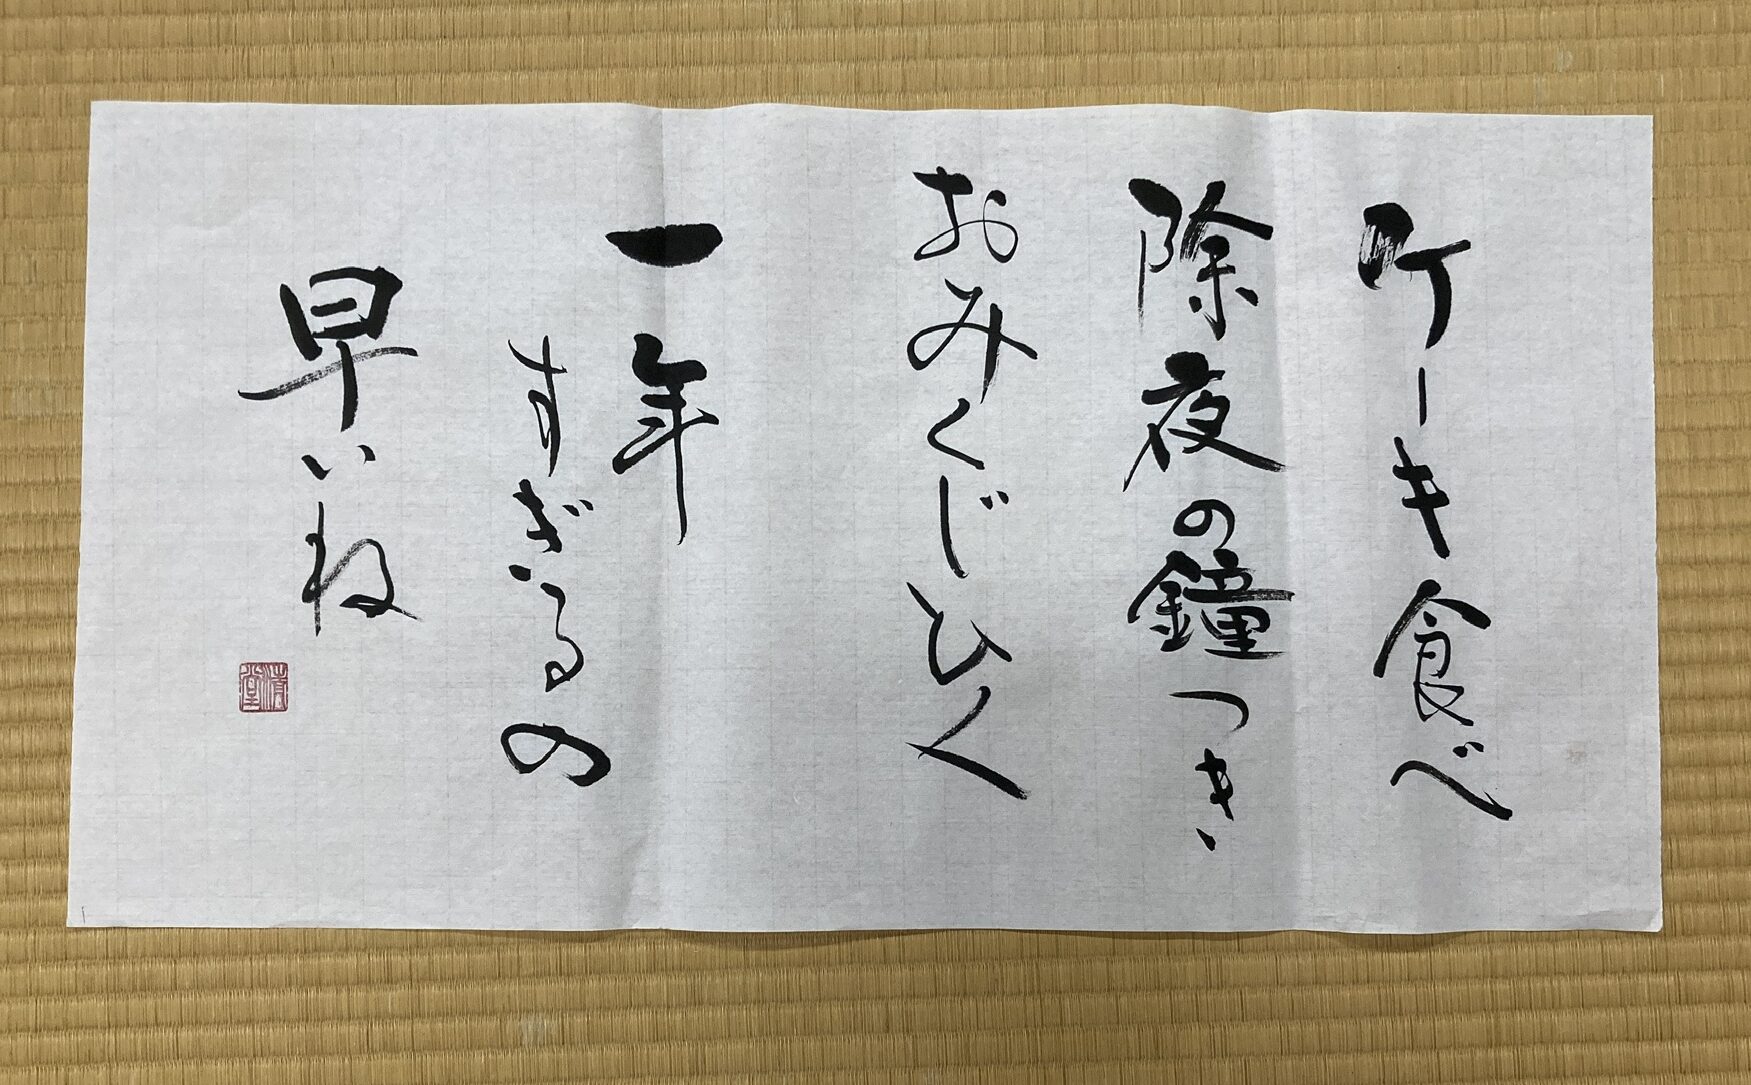 ケーキ食べ
除夜の鐘つき
おみくじひく
一年
すぎるの
早いね